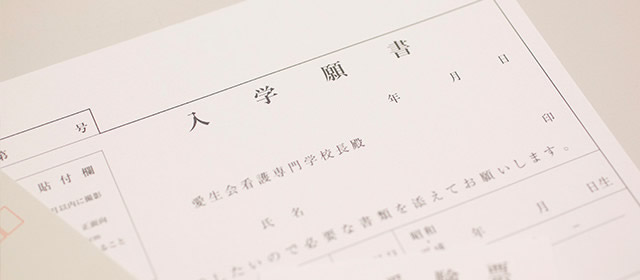 入学願書
年 月 日
第 号
愛生会看護専門学校長殿
印
貼付欄
月以内に撮影
正面向
ること
氏名
したいので必要な書類を添えてお願いします。
昭和
年 月 日生